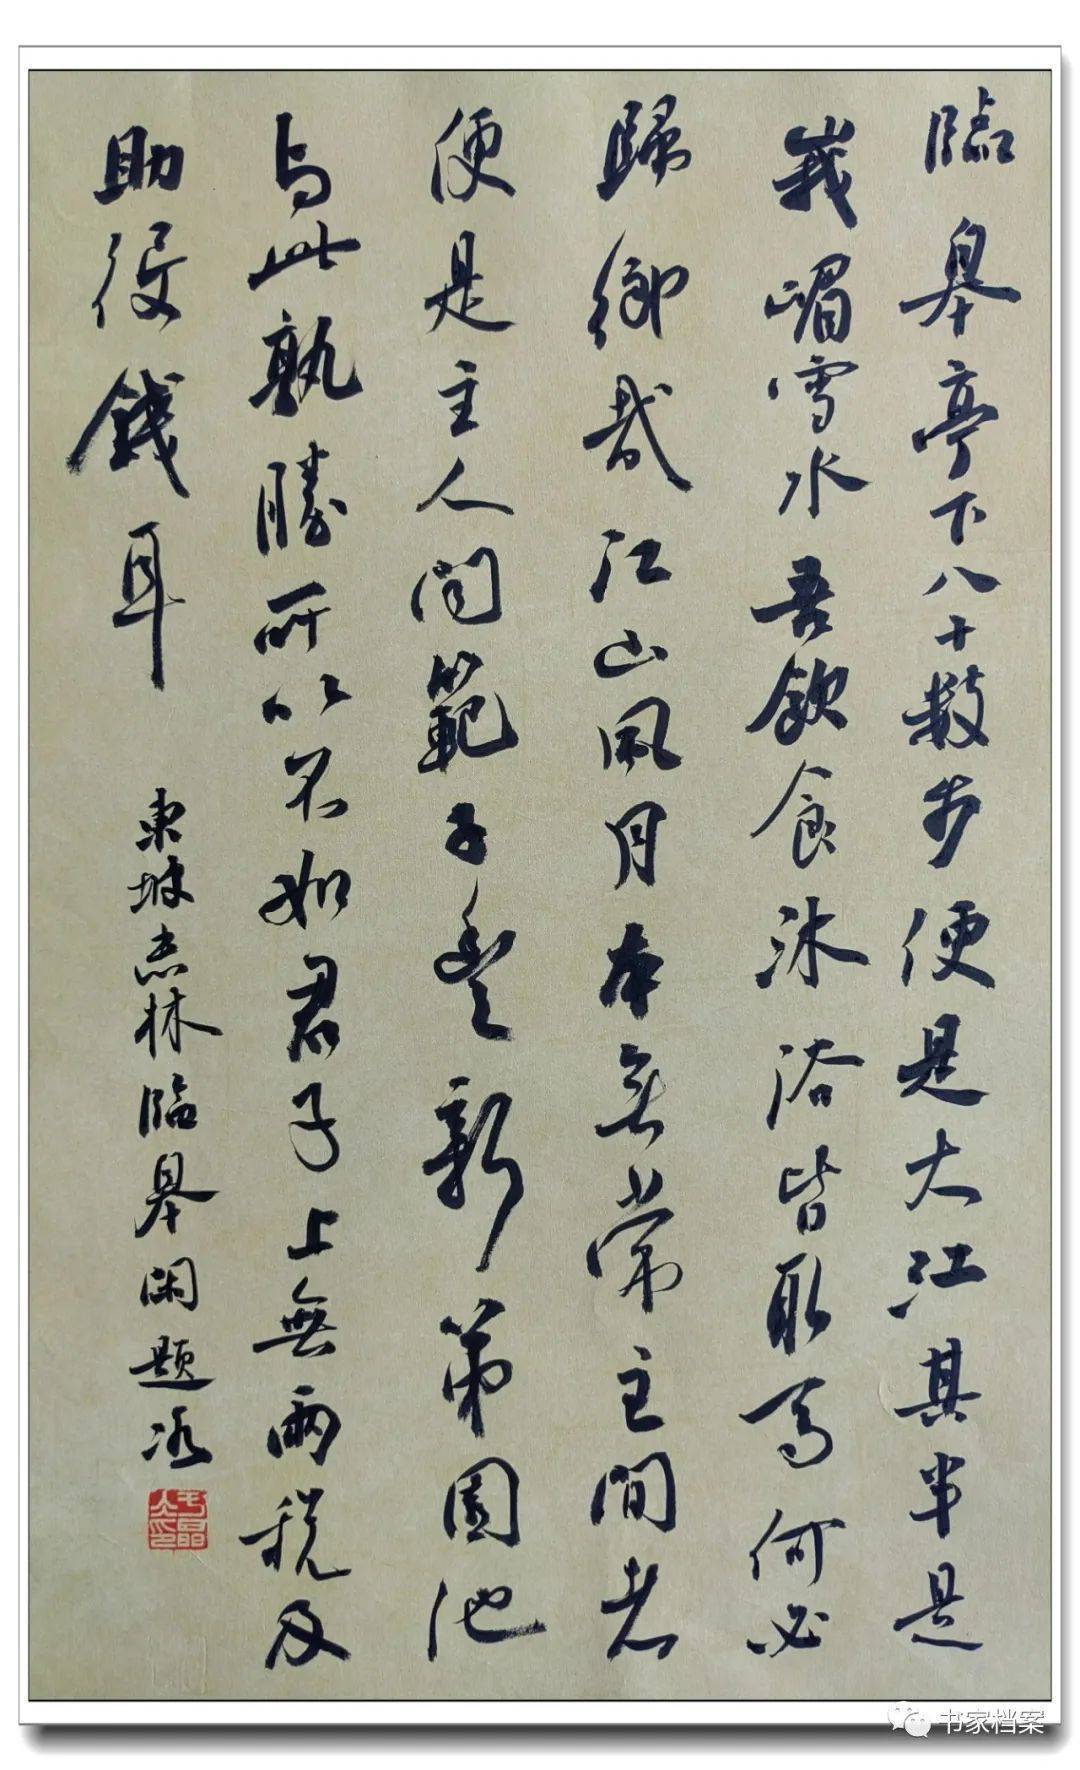 臨皋亭下八十數步便是大江其半是
峩嵋雪水吾飲食沐浴皆取焉何必
歸鄉哉江山風月本無常主閒者
便是主人聞範子豐新第園池
与此孰勝所以不如君子上無兩稅及
助役錢耳
東坡志林臨皋閑題
书家档案